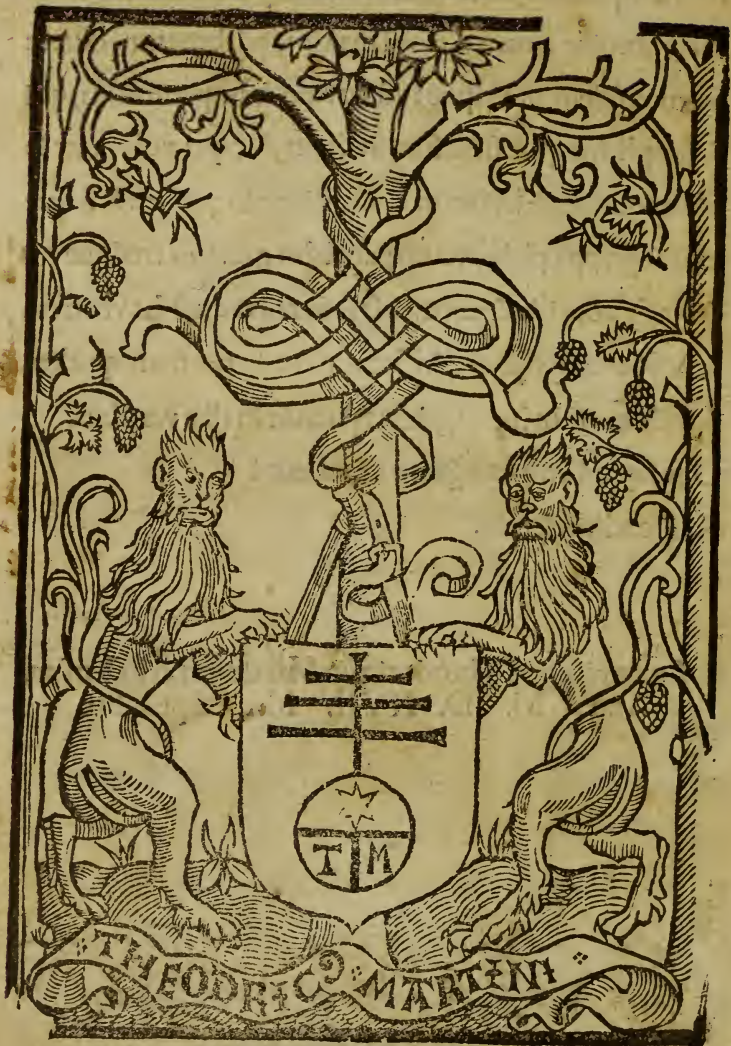 T M
THEODRICꝰ MARTINI